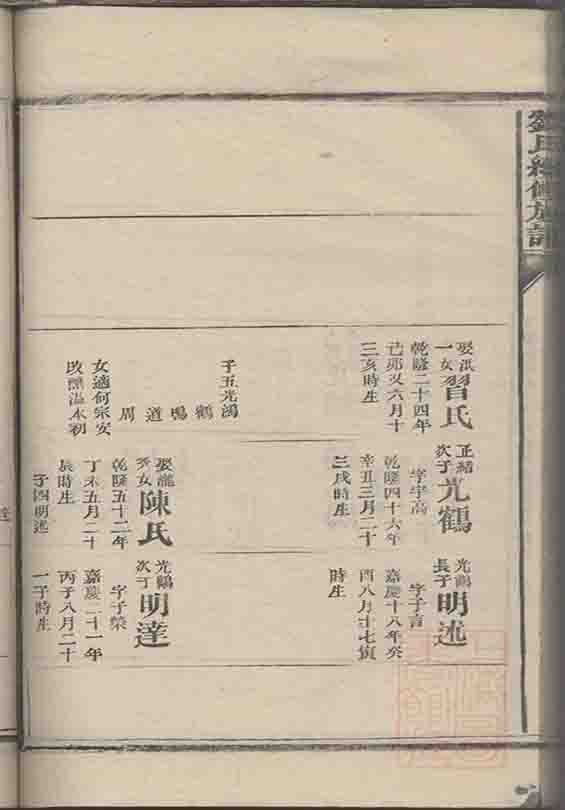 劉氏續修族譜
娶洪
一女
習氏
乾隆二十四年
己卯又六月十
三亥時生
子五光鴻
鶴
鳴
道
周
女適何宗安
正緒
次子
光鶴
字宇高
乾隆四十六年
辛丑三月二十
三戌時生
娶龍
秀女
陳氏
乾隆五十二年
丁未五月二十
辰時生
子四明述
光鶴
長子
明述
字子言
嘉慶十八年癸
酉八月十七寅
時生
光鶴
次子
明達
字子榮
嘉慶二十一年
丙子八月二十
一子時生